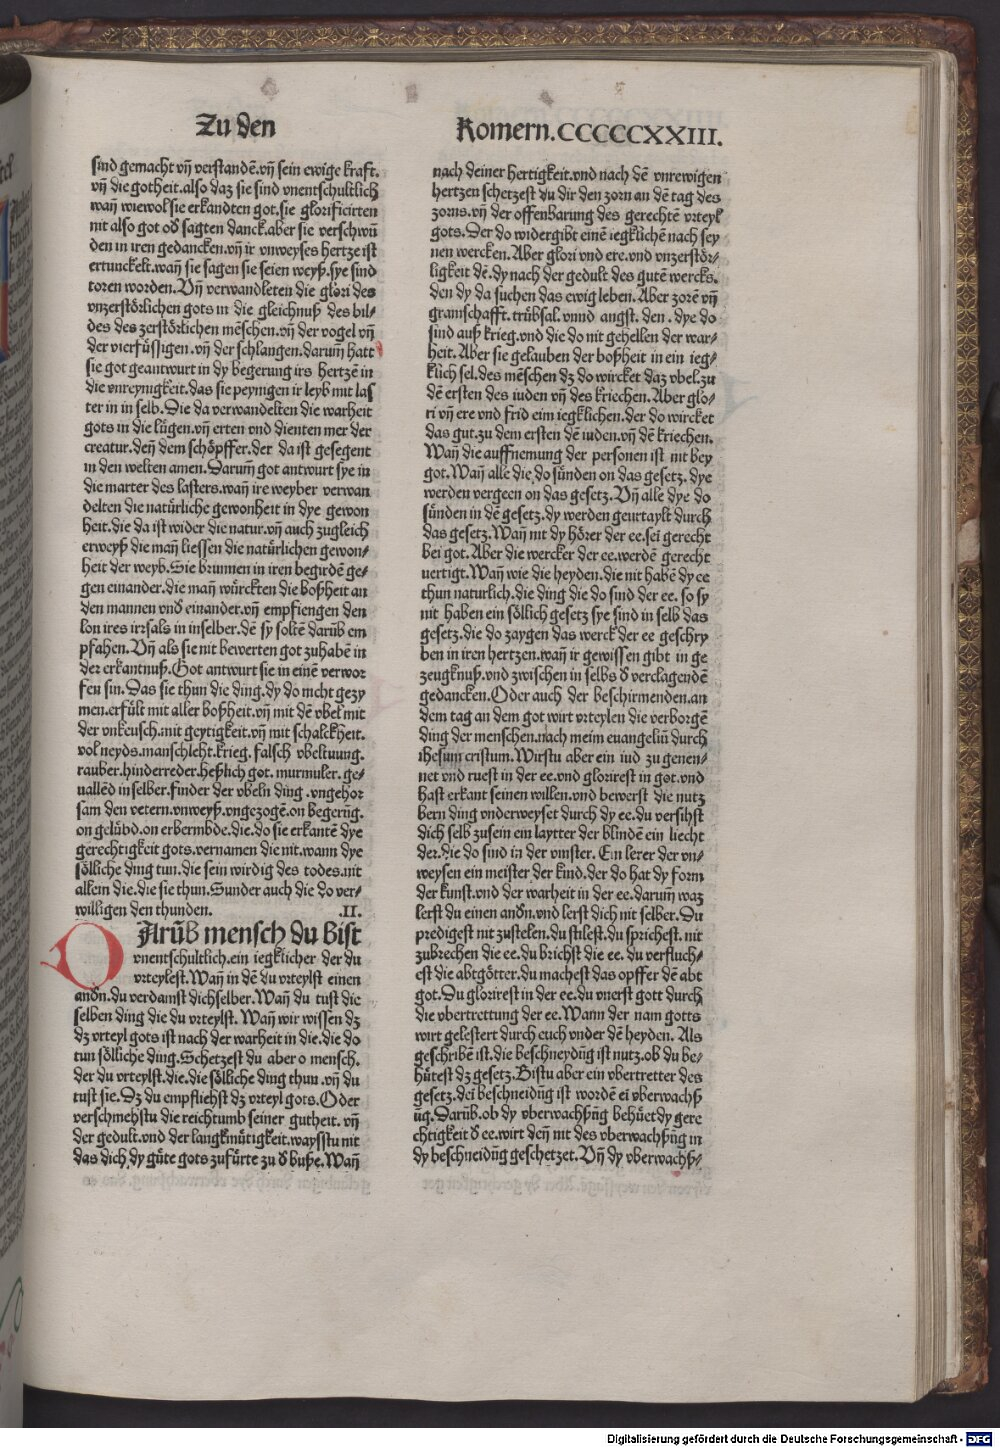 Zu den
Romern.CCCCCXXIII.
sind gemacht vñ verstandē.vñ sein ewige kraft.
vñ die gotheit.also daz sie sind vnentschultlich
wañ wiewol sie erkandten got.sie glorificirten
nit also got oď sagten danck.aber sie verschwū
den in iren gedancken.vñ ir vnweyses hertze ist
ertunckelt.wañ sie sagen sie seien weyß.sye sind
toren worden.Vñ verwandleten die glori des
vnzerstörlichen gots in die gleichnuß des bil⸗
des des zerstörlichen mēschen.vñ der vogel vñ
der vierfüssigen.vñ der schlangen.darum̄ hatt
sie got geantwurt in dy begerung irs hertzē in
die vnreynigkeit.das sie peynigen ir leyb mit las
ter in in selb.Die da verwandelten die warheit
gots in die lügen.vñ erten vnd dienten mer der
creatur.deñ dem schöpffer.der da ist gesegent
in den welten amen.Darum̄ got antwurt sye in
die marter des lasters.wañ ire weyber verwan
delten die natürliche gewonheit in dye gewon
heit.die da ist wider die natur.vñ auch zugleich
erweyß die mañ liessen die natürlichen gewon⸗
heit der weyb.Sie brunnen in iren begirdē ge⸗
gen einander.die mañ würckten die boßheit an
den mannen vnď einander.vñ empfiengen den
lon ires irrsals in inselber.dē sy soltē darūb em
pfahen.Vñ als sie nit bewerten got zuhabē in
der erkantnuß.Got antwurt sie in einē verwor
fen sin.Das sie thun die ding.dy do nicht gezy
men.erfült mit aller boßheit.vñ mit dē vbel mit
der vnkeusch.mit geytigkeit.vñ mit schalckheit.
vol neyds.manschleht.krieg.falsch vbeltuung.
rauber.hinderreder.heßlich got.murmuler.ge⸗
uallēd inselber.finder der vbeln ding.vngehor
sam den vetern.vnweyß.vngezogē.on begerūg.
on gelübd.on erbermbde.die.do sie erkantē dye
gerechtigkeit gots.vernamen die nit.wann dye
sölliche ding tun.die sein wirdig des todes.nit
allein die.die sie thun.Sunder auch die do ver⸗
willigen den thunden. .II.
DArūb mensch du bist
vnentschultlich.ein iegklicher der du
vrteylest.Wañ in dē du vrteylst einen
anďn.du verdamst dichselber.Wañ du tust die
selben ding die du vrteylst.Wañ wir wissen dz
dz vrteyl gots ist nach der warheit in die.die do
tun sölliche ding.Schetzest du aber o mensch.
der du vrteylst.die.die sölliche ding thun.vñ du
tust sie.Dz du empfliehst dz vrteyl gots.Oder
verschmehstu die reichtumb seiner gutheit.vñ
der gedult.vnd der langkmütigkeit.waysstu nit
das dich dy güte gots zufürte zu ď buße.Wañ
nach deiner hertigkeit.vnd nach dē vnrewigen
hertzen schetzest du dir den zorn an dē tag des
zorns.vñ der offenbarung des gerechtē vrteyl
gots.Der do widergibt einē iegklichē nach sey
nen wercken.Aber glori vnd ere.vnd vnzerstör⸗
ligkeit dē.dy nach der gedult des gutē wercks.
den dy da suchen das ewig leben.Aber zorē vñ
gramschafft.trübsal.vnnd angst.den.dye do
sind auß krieg.vnd die do nit gehellen der war⸗
heit.Aber sie gelauben der boßheit in ein ieg⸗
klich sel.des mēschen dz do wircket daz vbel.zu
dē ersten des iuden vñ des kriechen.Aber glo⸗
ri vñ ere vnd frid eim iegklichen.der do wircket
das gut.zu dem ersten dē iuden.vñ dē kriechen.
Wañ die auffnemung der personen ist nit bey
got.Wañ alle die do sünden on das gesetz.dye
werden vergeen on das gesetz.Vñ alle dye do
sünden in dē gesetz.dy werden geurtaylt durch
das gesetz.Wañ nit dy hörer der ee.sei gerecht
bei got.Aber die wercker der ee.werdē gerecht
uertigt.Wañ wie die heyden.die nit habē dy ee
thun naturlich.die ding die do sind der ee.so sy
nit haben ein söllich gesetz sye sind in selb das
gesetz.die do zaygen das werck der ee geschry
ben in iren hertzen.wañ ir gewissen gibt in ge
zeugknuß.vnd zwischen in selbs ď verclagendē
gedancken.Oder auch der beschirmenden.an
dem tag an dem got wirt vrteylen die verborgē
ding der menschen.nach meim euangeliū durch
ihesum cristum.Wirstu aber ein iud zu genen⸗
net vnd ruest in der ee.vnd glorirest in got.vnd
hast erkant seinen willen.vnd bewerst die nutz
bern ding vnderweyset durch dy ee.du versihst
dich selb zusein ein laytter der blindē ein liecht
der.die do sind in der vinster.Ein lerer der vn⸗
weysen ein meister der kind.der do hat dy form
der kunst.vnd der warheit in der ee.darum̄ waz
lerst du einen anďn.vnd lerst dich nit selber.Du
predigest nit zustelen.du stilest.du sprichest.nit
zubrechen die ee.du brichst die ee.du verfluch⸗
est die abtgötter.du machest das opffer dē abt
got.Du glorirest in der ee.du vnerst gott durch
die vbertrettung der ee.Wann der nam gotts
wirt gelestert durch euch vnder dē heyden.Als
geschribē ist.die beschneydūg ist nutz.ob du be⸗
hütest dz gesetz.Bistu aber ein vbertretter des
gesetz.dei beschneidūg ist wordē ei vberwachß
ūg.Darūb.ob dy vberwachßūg behüet dy gere
chtigkeit ď ee.wirt deñ nit des vberwachßūg in
dy beschneidūg geschetzet.Vñ dy vberwachß⸗
Digitalisierung gefördert durch die Deutsche Forschungsgemeinschaft - DFG